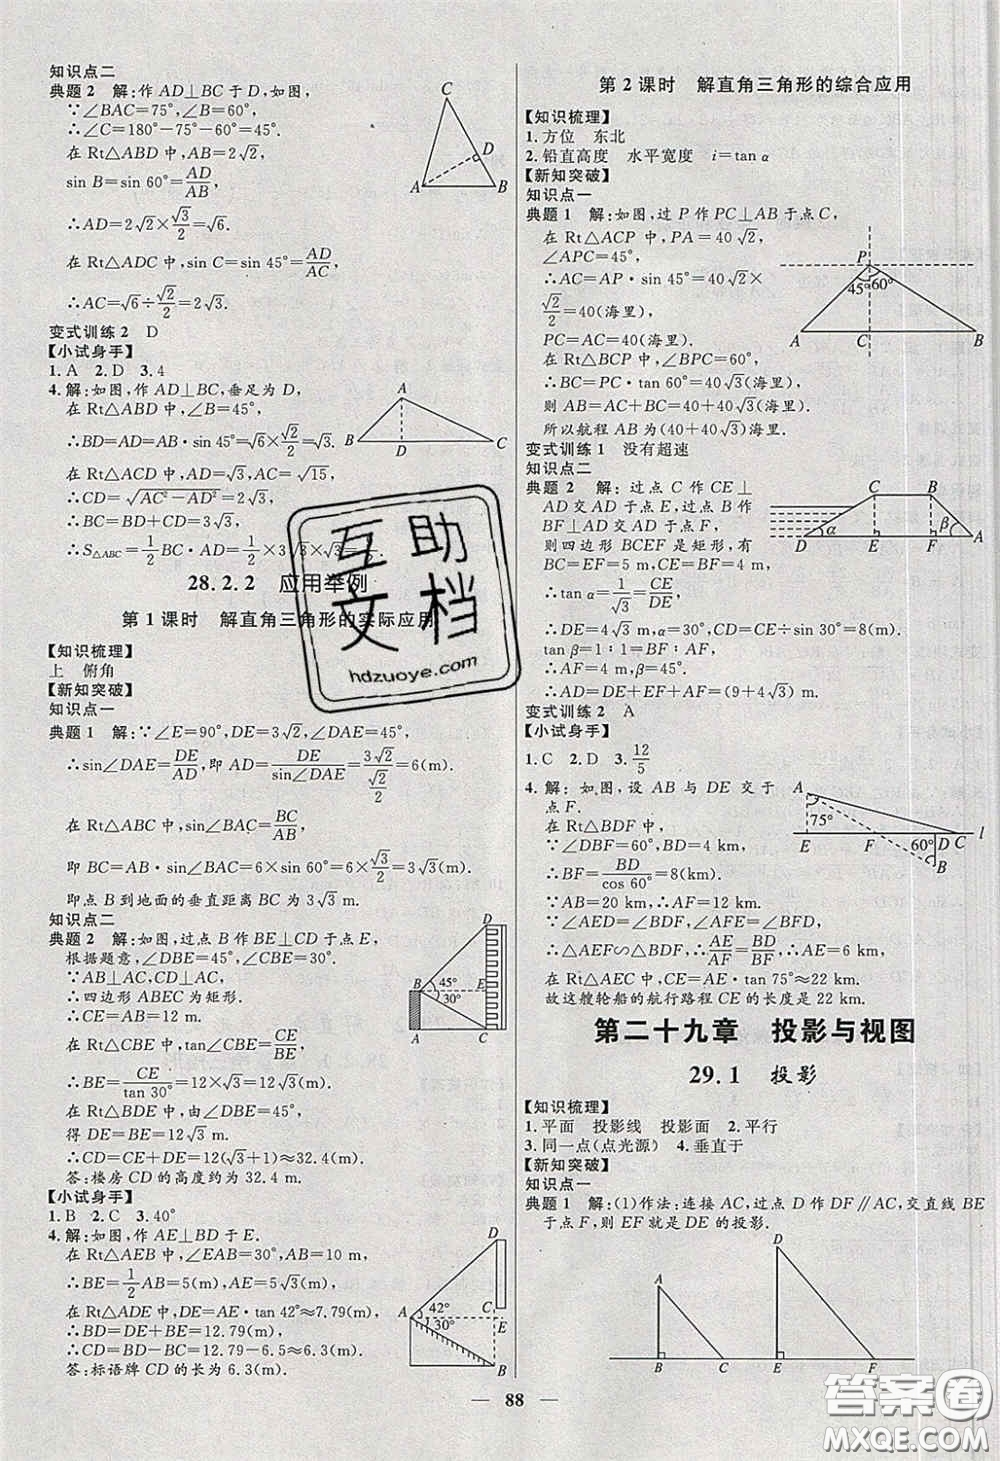 知识点二
典题 2 解:作 AD⊥BC 于 D,如图,
∵∠BAC=75°,∠B=60°,
∴∠C=180°-75°-60°=45°.
在 Rt△ABD 中,AB=2√2,
sin B=sin 60°=AD/AB,
∴AD=2√2×√3/2=√6.
在 Rt△ADC 中,sin C=sin 45°=AD/AC,
∴AC=√6÷√2/2=2√3.
变式训练 2 D
【小试身手】
1.A 2.D 3.4
4.解:如图,作 AD⊥BC,垂足为 D,
在 Rt△ABD 中,∠B=45°,
∴BD=AD=AB·sin 45°=√6×√2/2=√3.
在 Rt△ACD 中,AD=√3,AC=√15,
∴CD=√AC²-AD²=2√3,
∴BC=BD+CD=3√3,
∴S△ABC=1/2BC·AD=1/2×3√3×√3=
28.2.2 应用举例
第 1 课时 解直角三角形的实际应用
【知识梳理】
上 俯角
【新知突破】
知识点一
典题 1 解:∵∠E=90°,DE=3√2,∠DAE=45°,
∴sin∠DAE=DE/AD,即 AD=DE/sin∠DAE=3√2/(√2/2)=6(m).
在 Rt△ABC 中,sin∠BAC=BC/AB,
即 BC=AB·sin∠BAC=6×sin 60°=6×√3/2=3√3(m).
即点 B 到地面的垂直距离 BC 为 3√3 m.
知识点二
典题 2 解:如图,过点 B 作 BE⊥CD 于点 E,
根据题意,∠DBE=45°,∠CBE=30°.
∵AB⊥AC,CD⊥AC,
∴四边形 ABEC 为矩形.
∴CE=AB=12 m.
在 Rt△CBE 中,tan∠CBE=CE/BE,
∴BE=CE/tan 30°=12√3 m.
在 Rt△BDE 中,由∠DBE=45°,
得 DE=BE=12√3 m.
∴CD=CE+DE=12(√3+1)≈32.4(m).
答:楼房 CD 的高度约为 32.4 m.
【小试身手】
1.B 2.C 3.40°
4.解:如图,作 AE⊥BD 于 E.
在 Rt△AEB 中,∠EAB=30°,AB=10 m,
∴BE=1/2AB=5(m),AE=5√3(m),
在 Rt△ADE 中,DE=AE·tan 42°≈7.79(m),
∴BD=DE+BE=12.79(m),
∴CD=BD-BC=12.79-6.5≈6.3(m),
答:标语牌 CD 的长为 6.3(m).
第 2 课时 解直角三角形的综合应用
【知识梳理】
1.方位 东北
2.铅直高度 水平宽度 i=tan α
【新知突破】
知识点一
典题 1 解:如图,过 P 作 PC⊥AB 于点 C,
在 Rt△ACP 中,PA=40√2,
∠APC=45°,
∴AC=AP·sin 45°=40√2×
√2/2=40(海里),
PC=AC=40(海里),
在 Rt△BCP 中,∠BPC=60°,
∴BC=PC·tan 60°=40√3(海里),
则 AB=AC+BC=40+40√3(海里).
所以航程 AB 为(40+40√3)海里.
变式训练 1 没有超速
知识点二
典题 2 解:过点 C 作 CE⊥
AD 交 AD 于点 E,过点 B 作
BF⊥AD 交 AD 于点 F,
则四边形 BCEF 是矩形,有
BC=EF=5(m),CE=BF=
∴DE=4√3(m),CD=CE÷sin∠CDE=8(m).
tan β=1∶1=BF∶AF,
∴AF=4 m,β=45°,
∴AD=DE+EF+AF=(9+4√3)m.
变式训练 2 A
【小试身手】
1.C 2.D 3.12/5
4.解:如图,设 AB 与 DE 交于
点 F.
在 Rt△BDF 中,
∵∠DBF=60°,BD=4 km,
∴BF=BD/cos 60°=8(km).
∵AB=20 km,∴AF=12 km.
∵∠AED=∠BDE,∠AFE=∠BFD,
∴△AEF∽△BDF,∴AE/AF=BD/BF,∴AE=6 km,
在 Rt△AEC 中,CE=AE·tan 75°≈22 km.
故这艘轮船的航行路程 CE 的长度是 22 km.
第二十九章 投影与视图
29.1 投影
【知识梳理】
1.平面 投影线 投影面 2.平行
3.同一点(点光源) 4.垂直于
【新知突破】
知识点一
典题 1 解:(1)作法:连接 AC,过点 D 作 DF∥AC,交直线 BE
于点 F,则 EF 就是 DE 的投影.
88
互助文档
hdzuoye.com
答案圈
MXQE.COM